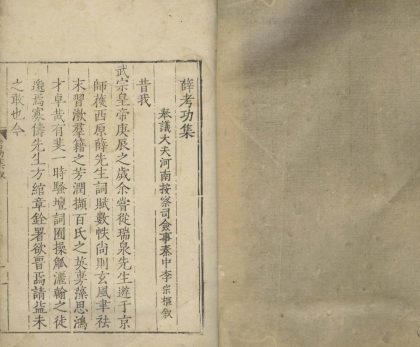 薛考功集
奉議大夫河南按察司僉事秦中李宗樞叙
昔我
武宗皇帝庚辰之歲余嘗從瑞泉先生遊于京
師獲西原薛先生詞賦數帙尚則玄風聿祛
末習漱羣籍之芳潤擷百氏之英蕤藻思鴻
才卓哉有斐一時騷壇詞圃操觚濡翰之徒
邈焉寡儔先生方綰章銓署欲晉焉請益未
之敢也今